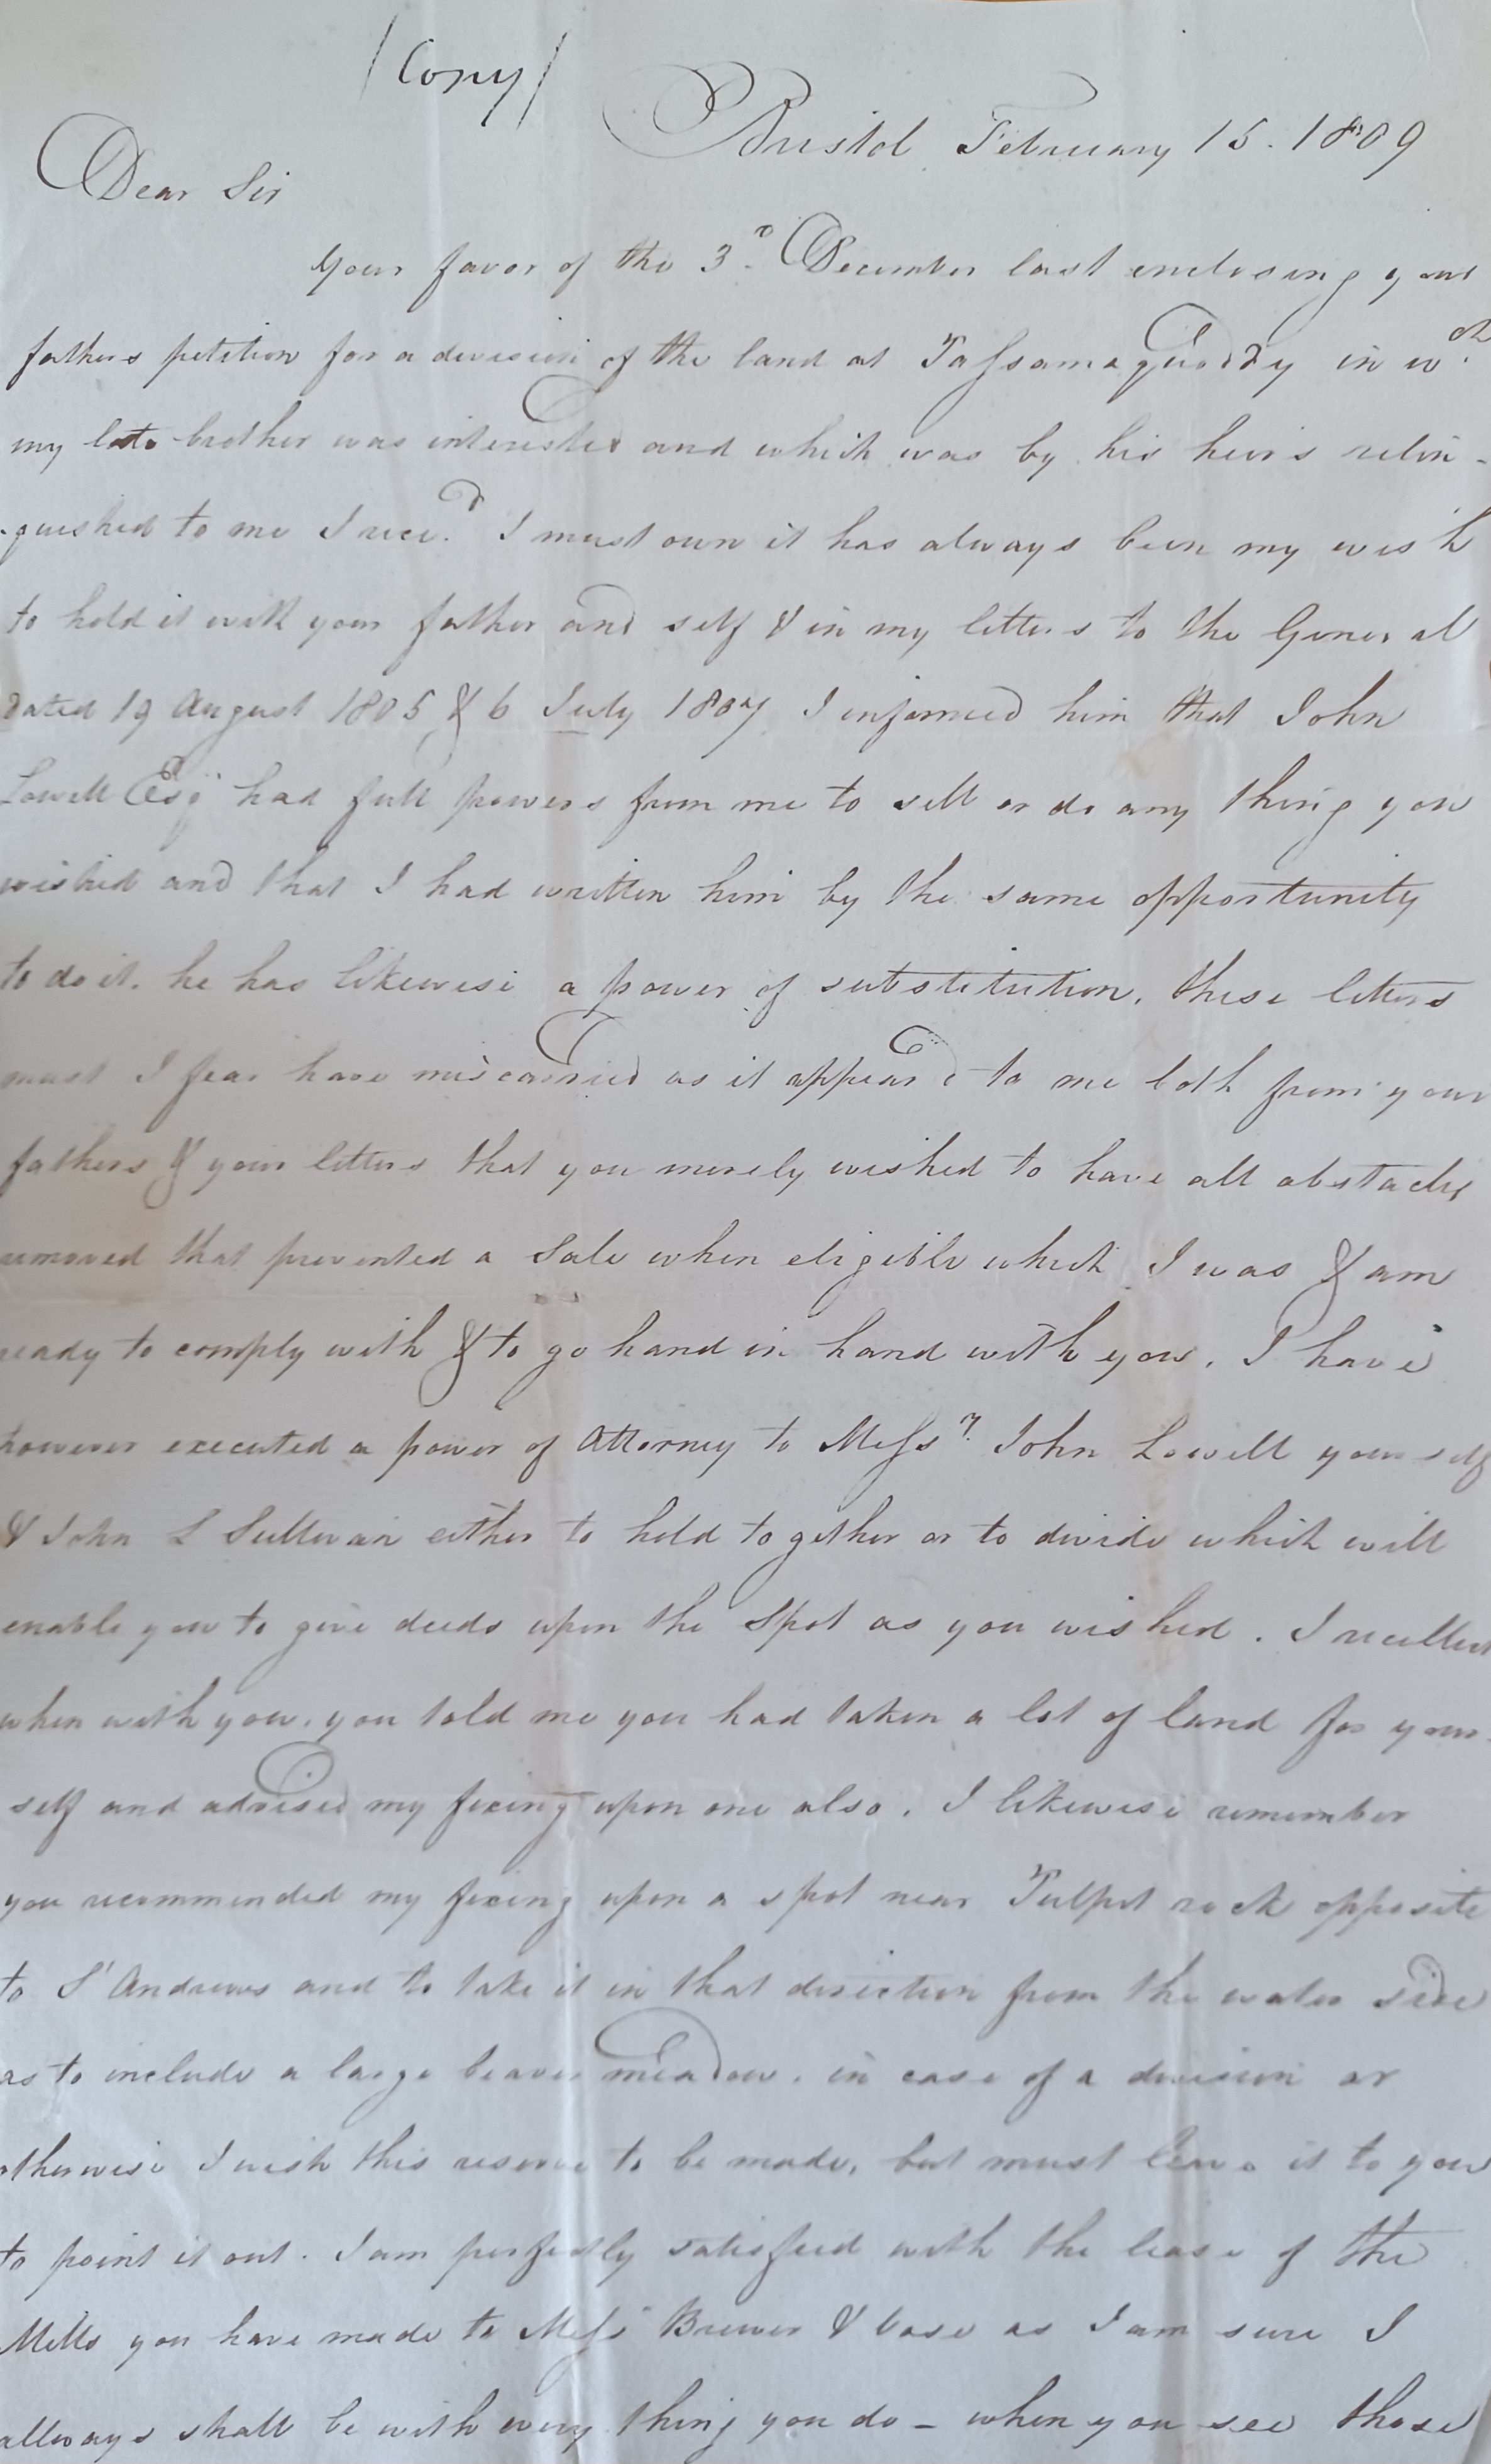 /Copy/
Bristol February 15. 1809
Dear Sir
Your favor of the 3d. December last enclosing your
fathers petition for a division of the land at Passamaquoddy in wch.
my late brother was interested and which was by his heirs relin-
-quished to me I recd. I must own it has always been my wish
to hold it with your father and self & in my letters to the General
dated 19 August 1805 & 6 July 1807 I informed him that John
Lowell Esqr had full powers from me to sell or do any thing you
wished and that I had written him by the same opportunity
to do it. he has likewise a power of substitution. these letters
must I fear have miscarried as it appeard to me both from your
fathers & your letters that you merely wished to have all obstacles
removed that prevented a Sale when eligible which I was & am
ready to comply with & to go hand in hand with you. I have
however executed a power of Attorney to Messrs. John Lowell yourself
& John L Sullivan either to hold together or to divide which will
enable you to give deeds upon the Spot as you wished. I recollect
when with you, you told me you had taken a lot of land for your-
self and advised my fixing upon one also. I likewise remember
you recommended my fixing upon a spot near Pulpit rock opposite
to St Andrews and to take it in that direction from the water side
as to include a large beaver meadow. in case of a division or
otherwise I wish this reserve to be made, but must leave it to you
to point it out. I am perfectly satisfied with the lease of the
Mills you have made to Messrs Brewer & Vose as I am sure I
allways shall be with every thing you do - when you see those